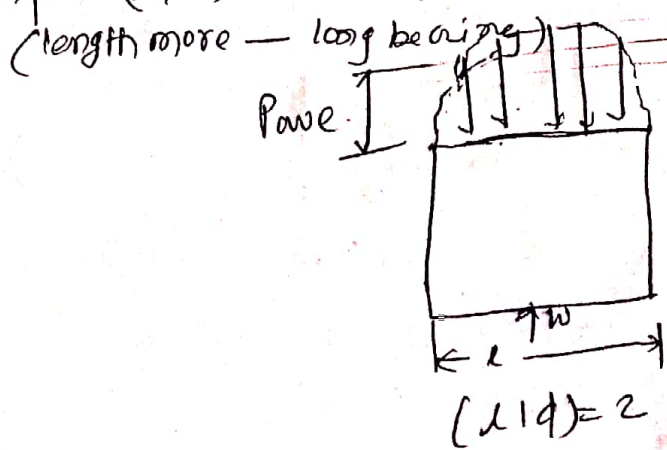 (length more — long bearing)
Pave.
W
l
(l/d) = 2